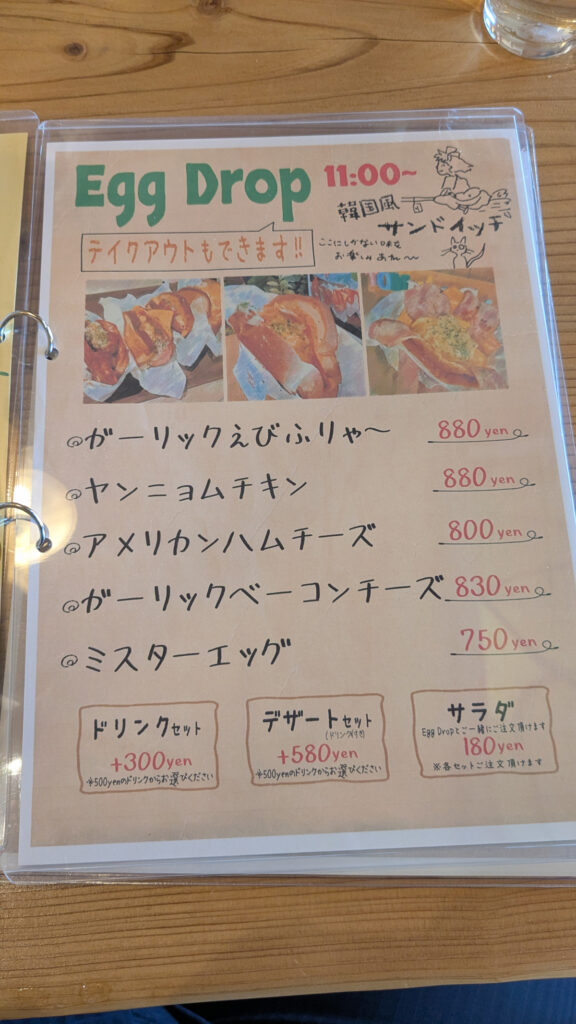 Egg Drop 11:00~
韓国風
サンドイッチ
テイクアウトもできます!!
ここにしかない味を
お楽しみあれ〜〜
ガーリックえびふりゃ〜 880yen
ヤンニョムチキン 880yen
アメリカンハムチーズ 800yen
ガーリックベーコンチーズ 830yen
ミスターエッグ 750yen
ドリンクセット
+300yen
※500yenのドリンクからお選びください
デザートセット
(ドリンク付き)
+580yen
※500yenのドリンクからお選びください
サラダ
Egg Dropとご一緒にご注文頂けます
180yen
※各セットご注文頂けます